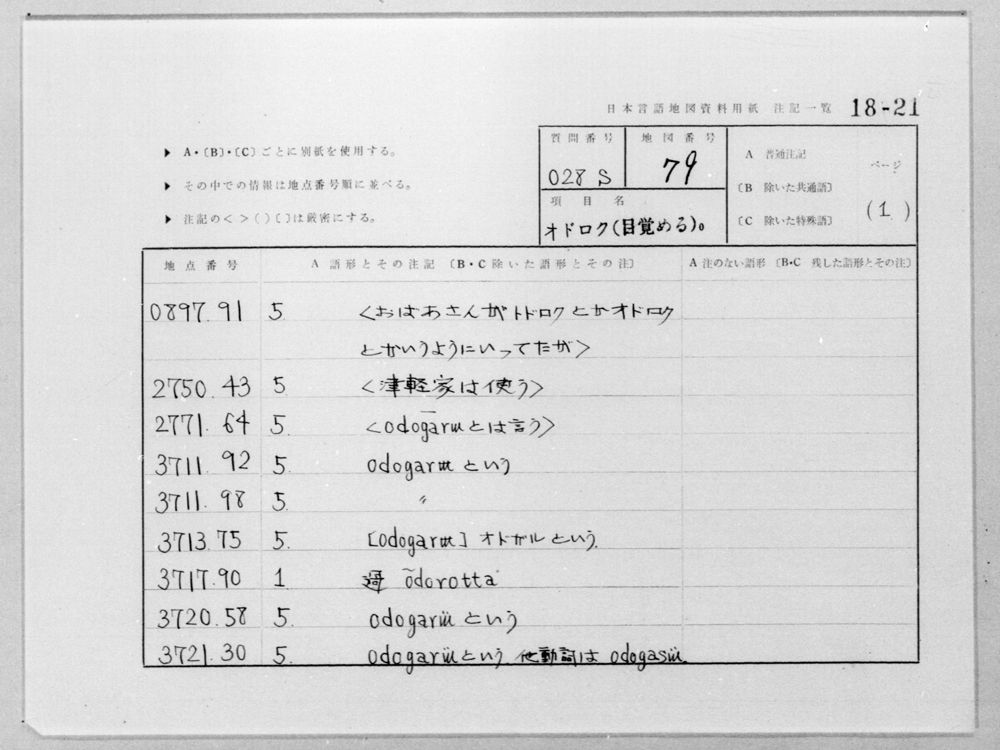 日本言語地図資料用紙 注記一覧 18-21
▶ A・〔B〕・〔C〕ごとに別紙を使用する。
▶ その中での情報は地点番号順に並べる。
▶ 注記の< >( )〔 〕は厳密にする。
質問番号 地図番号
028 S 79
項目名
オドロク(目覚める)。
A 普通注記
〔B 除いた共通語〕
〔C 除いた特殊語〕
ページ
(1)
地点番号 A 語形とその注記〔B・C除いた語形とその注〕 A 注のない語形〔B・C 残した語形とその注〕
0897.91 5 <おばあさんがトドロクとかオドロク
とかいうようにいってたが>
2750.43 5 <津軽家は使う>
2771.64 5. <odogarɯとは言う>
3711.92 5. odogarɯ̈という
3711.98 5. 〃
3713.75 5. [odogarɯ̈] オドガルという.
3717.90 1 過 õdorotta
3720.58 5. odogarɯ̈という
3721.30 5. odogarɯ̈という 他動詞は odogasɯ̈.